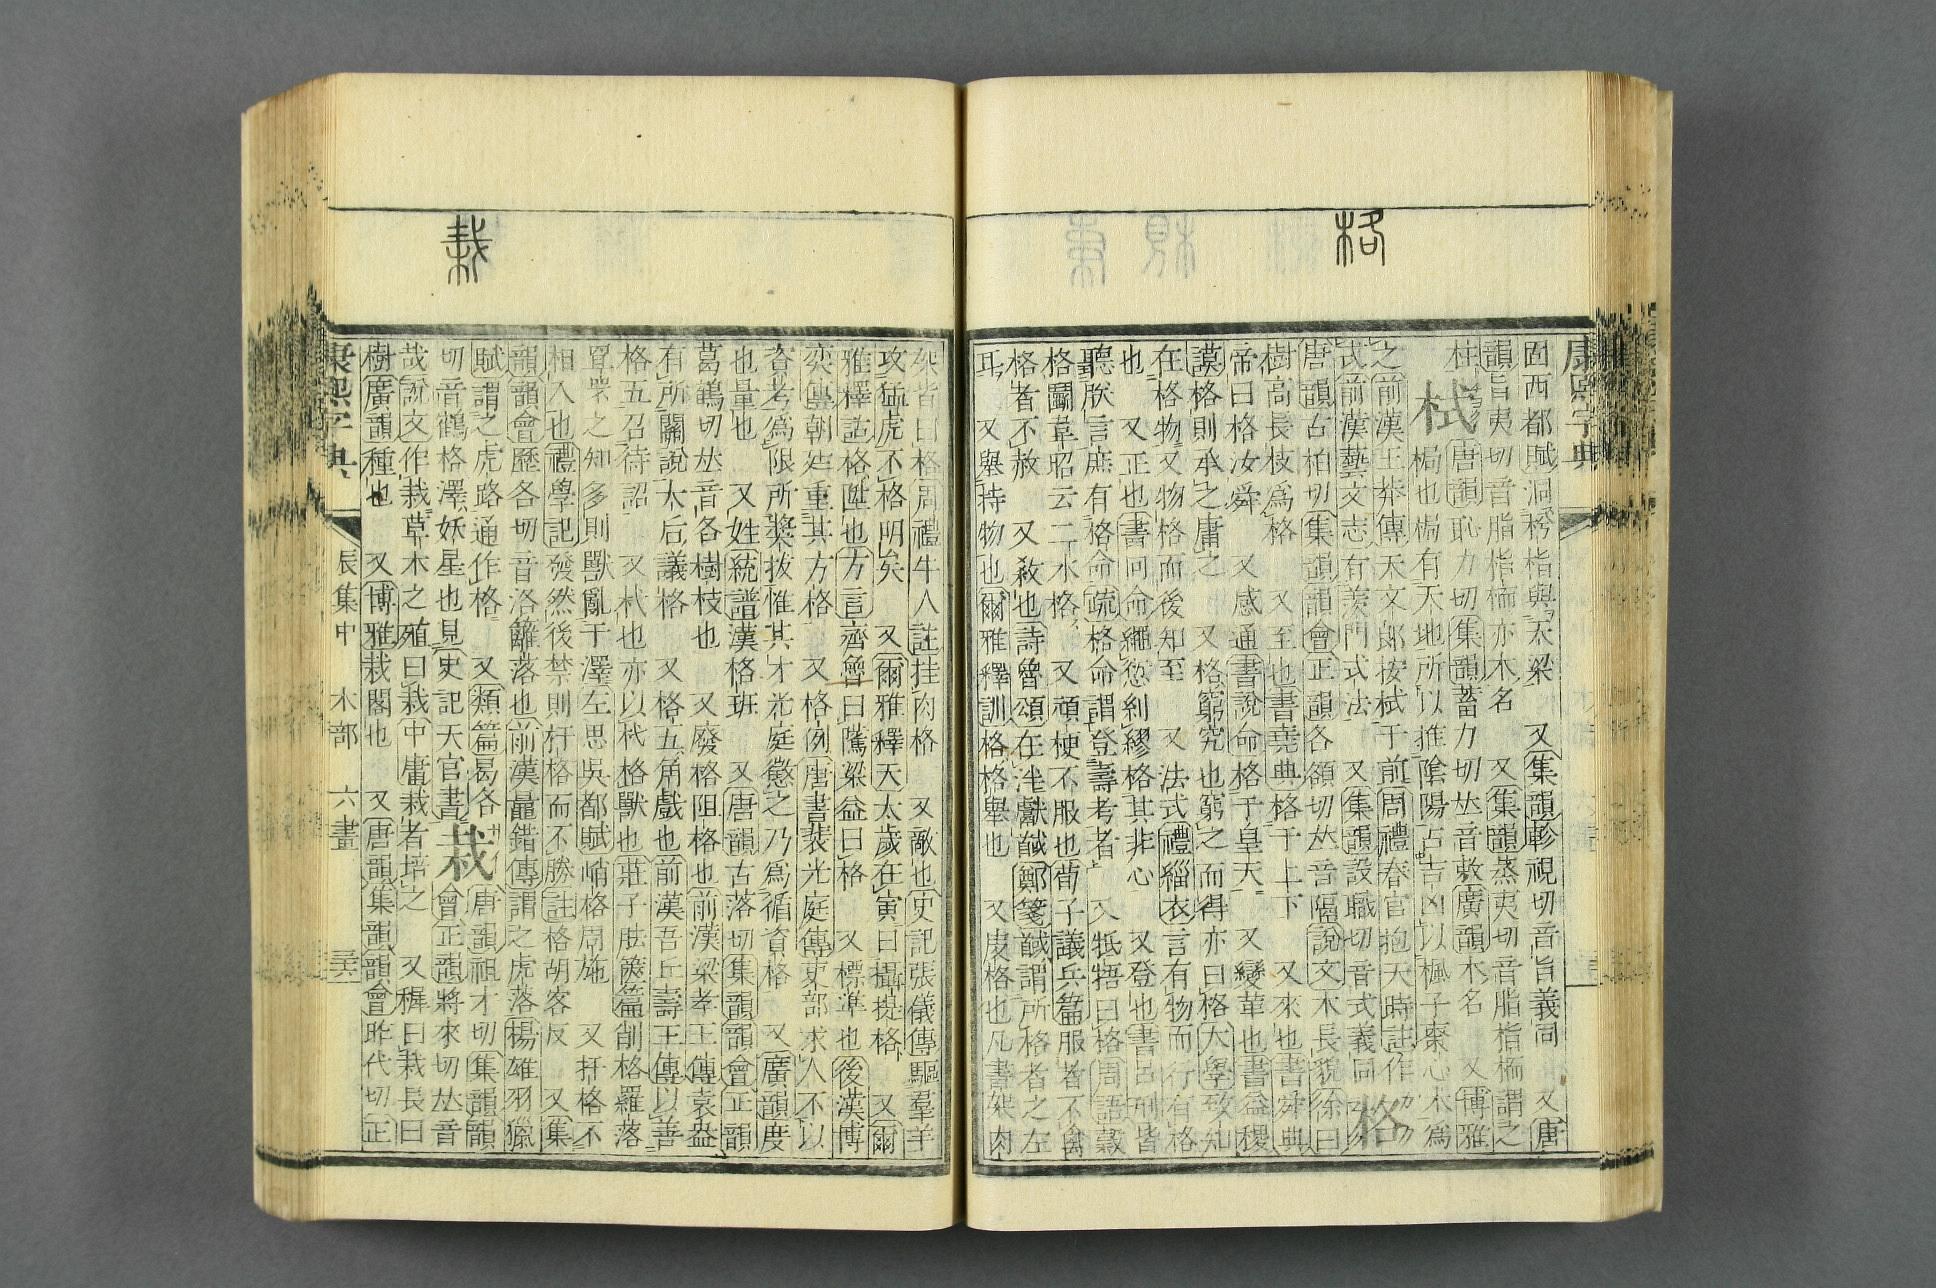 格
康熙字典
固西都賦洞枍栺與天梁　又集韻軫視切音旨義同　又唐
韻旨夷切音脂栺栭亦木名　又集韻蒸夷切音脂栺栭謂之
柱　栻　唐韻恥力切集韻蓄力切𠀤音敕廣韻木名　又博雅
梮也梮有天地所以推陰陽占吉凶以楓子棗心木爲
之前漢王莽傳天文郎按栻于前周禮春官抱天時註作
式前漢藝文志有羡門式法　又集韻設職切音式義同　格
唐韻古柏切集韻韻會正韻各頟切𠀤音隔說文木長貌徐曰
樹高長枝爲格　又至也書堯典格于上下　又來也書舜典
帝曰格汝舜　又感通書說命格于皇天　又變革也書益稷
謨格則承之庸之　又格窮究也窮之而得亦曰格大學致知
在格物又物格而後知至　又法式禮緇衣言有物而行有格
也　又正也書冏命繩愆糾繆格其非心　又登也書呂刑皆
聽朕言庶有格命疏格命謂登壽考者　又牴牾曰格周語穀
格鬬韋昭云二水格　又頑梗不服也荀子議兵篇服者不禽
格者不赦　又殺也詩魯頌在泮獻馘鄭箋馘謂所格者之左
耳　又舉持物也爾雅釋訓格格舉也　又庋格也凡書架肉
栽
架皆曰格周禮牛人註挂肉格　又敵也史記張儀傳驅羣羊
攻猛虎不格明矣　又爾雅釋天太歲在寅曰攝提格　又爾
雅釋詁格陞也方言齊魯曰隲梁益曰格　又標準也後漢博
奕傳朝廷重其方格　又格例唐書裴光庭傳吏部求人不以
資考爲限所奬拔惟其才光庭懲之乃爲循資格　又廣韻度
也量也　又姓統譜漢格班　又唐韻古落切集韻韻會正韻
葛鶴切𠀤音各樹枝也　又廢格阻格也前漢梁孝王傳袁盎
有所關說太后議格　又格五角戲也前漢吾丘壽王傳以善
格五召待詔　又杙也亦以杙格獸也莊子胠篋篇削格羅落
罝罘之知多則獸亂于澤左思吳都賦峭格周施　又扞格不
相入也禮學記發然後禁則扞格而不勝註格胡客反　又集
韻韻會歷各切音洛籬落也前漢鼂錯傳謂之虎落楊雄羽獵
賦謂之虎路通作格　又類篇曷各
切音鶴格澤妖星也見史記天官書　栽　唐韻祖才切集韻韻
會正韻將來切𠀤音
哉說文作栽草木之殖曰栽中庸栽者培之　又穉曰栽長曰
樹廣韻種也　又博雅栽閣也　又唐韻集韻韻會昨代切正
康熙字典　辰集中　木部　六畫